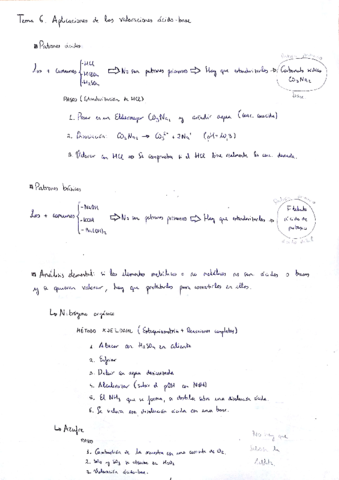 Tema 6. Aplicaciones de las valoraciones ácido-base
Patrones ácidos
Los + comunes -HCl -H2SO4 ⇒ No son patrones primarios ⇒ Hay que estandarizarlos ⇒ Carbonato sódico CO3Na2
PASOS (Estandarización de HCl)
1. Pesar en un Erlenmeyer CO3Na2 y añadir agua
2. CO3Na2 → CO3²⁻ + 2Na⁺
3. Valorar con HCl ⇒ Se comprueba si el HCl tiene realmente la conc. deseada.
Patrones básicos
Los + comunes -NaOH -KOH ⇒ No son patrones primarios ⇒ Hay que estandarizarlos ⇒ Ftalato ácido de potasio
Análisis elemental: si los elementos metálicos o no metálicos no son ácidos o bases
y se quieren valorar, hay que pretratarlos para convertirlos en ellos.
↳ Nitrógeno orgánico
MÉTODO KJELDAHL (Estequiométrica + Reacciones completas)
1. Atacar con H2SO4 en caliente
2. Enfriar
3. Diluir en agua
4. Alcalinizar (subir el pH con NaOH)
5. El NH3 que se forma, se destila sobre una disolución ácida.
6. Se valora esa disolución ácida con una base.
↳ Azufre
PASOS
1. Combustión de la muestra con una corriente de O2.
3. Valoración ácido-base.